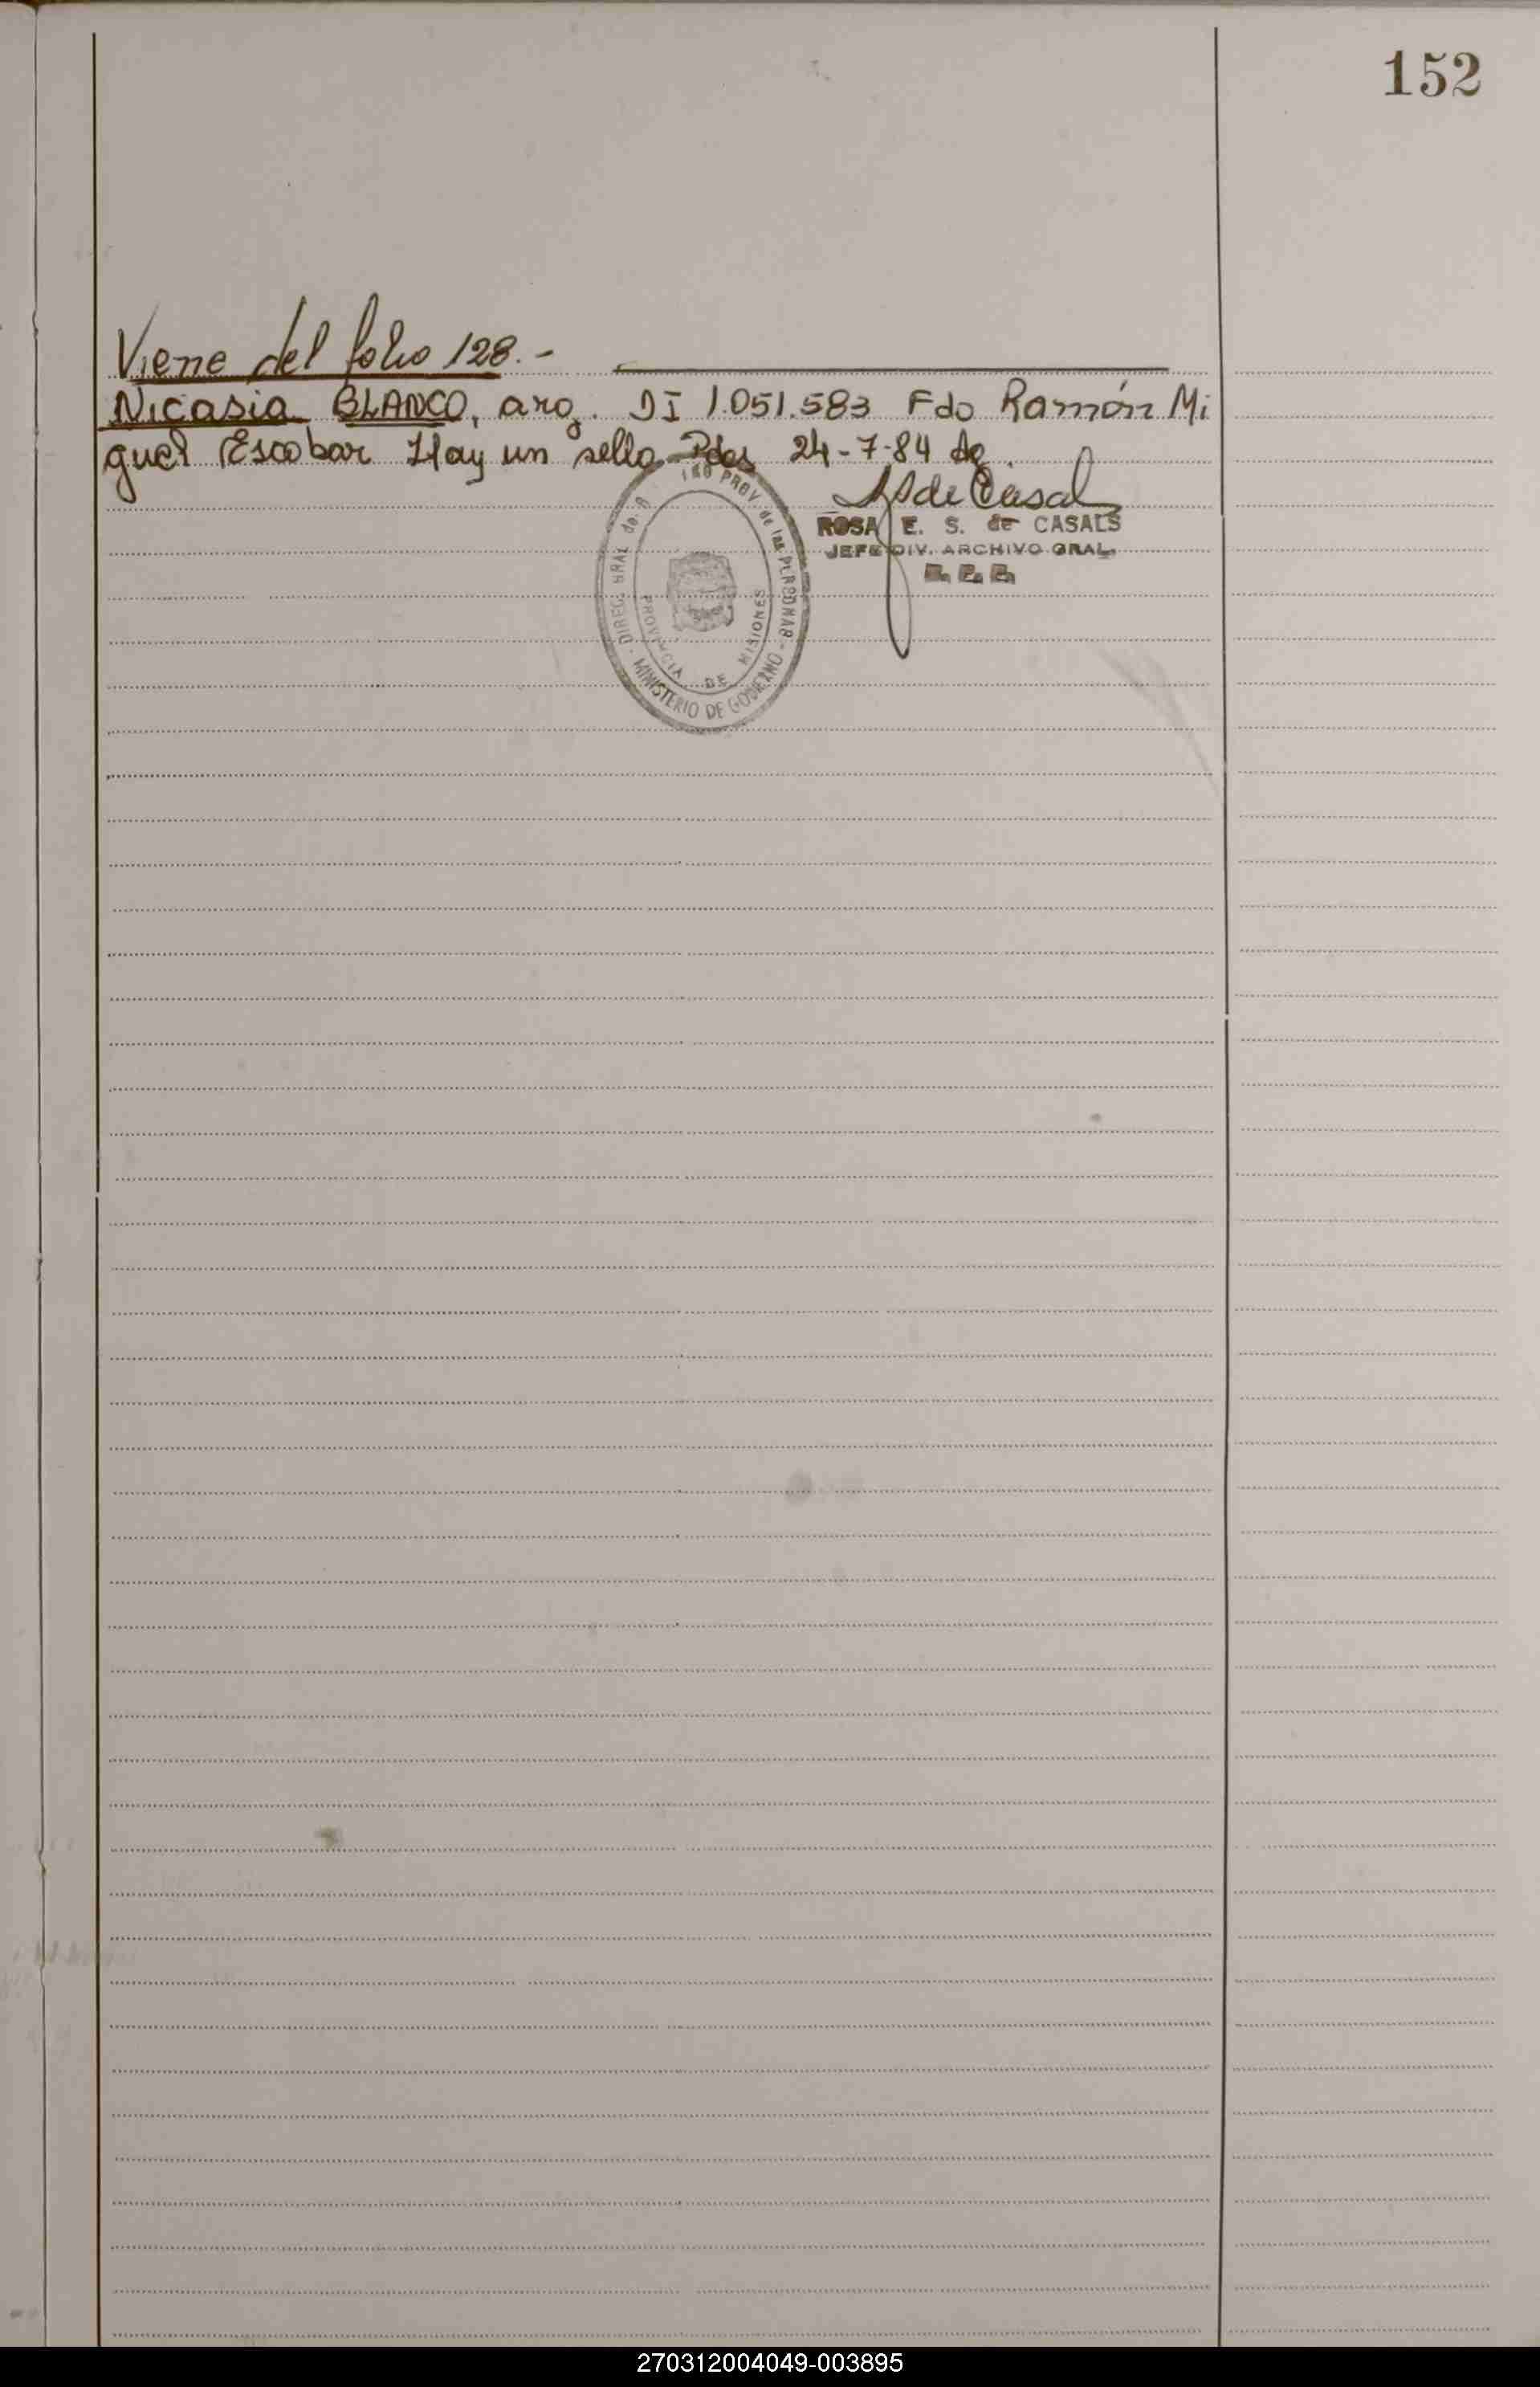 152
Viene del folio 128.-
Nicasia BLANCO, arg. DI 1.051.583 Fdo Ramón Mi
guel Escobar Hay un sello Pdas 24-7-84 Ag.
ROSA E. S. de CASALS
JEFE DIV. ARCHIVO GRAL.
DIREC. GRAL de PROV. de las PERSONAS
MINISTERIO DE GOBIERNO
PROVINCIA DE MISIONES
270312004049-003895